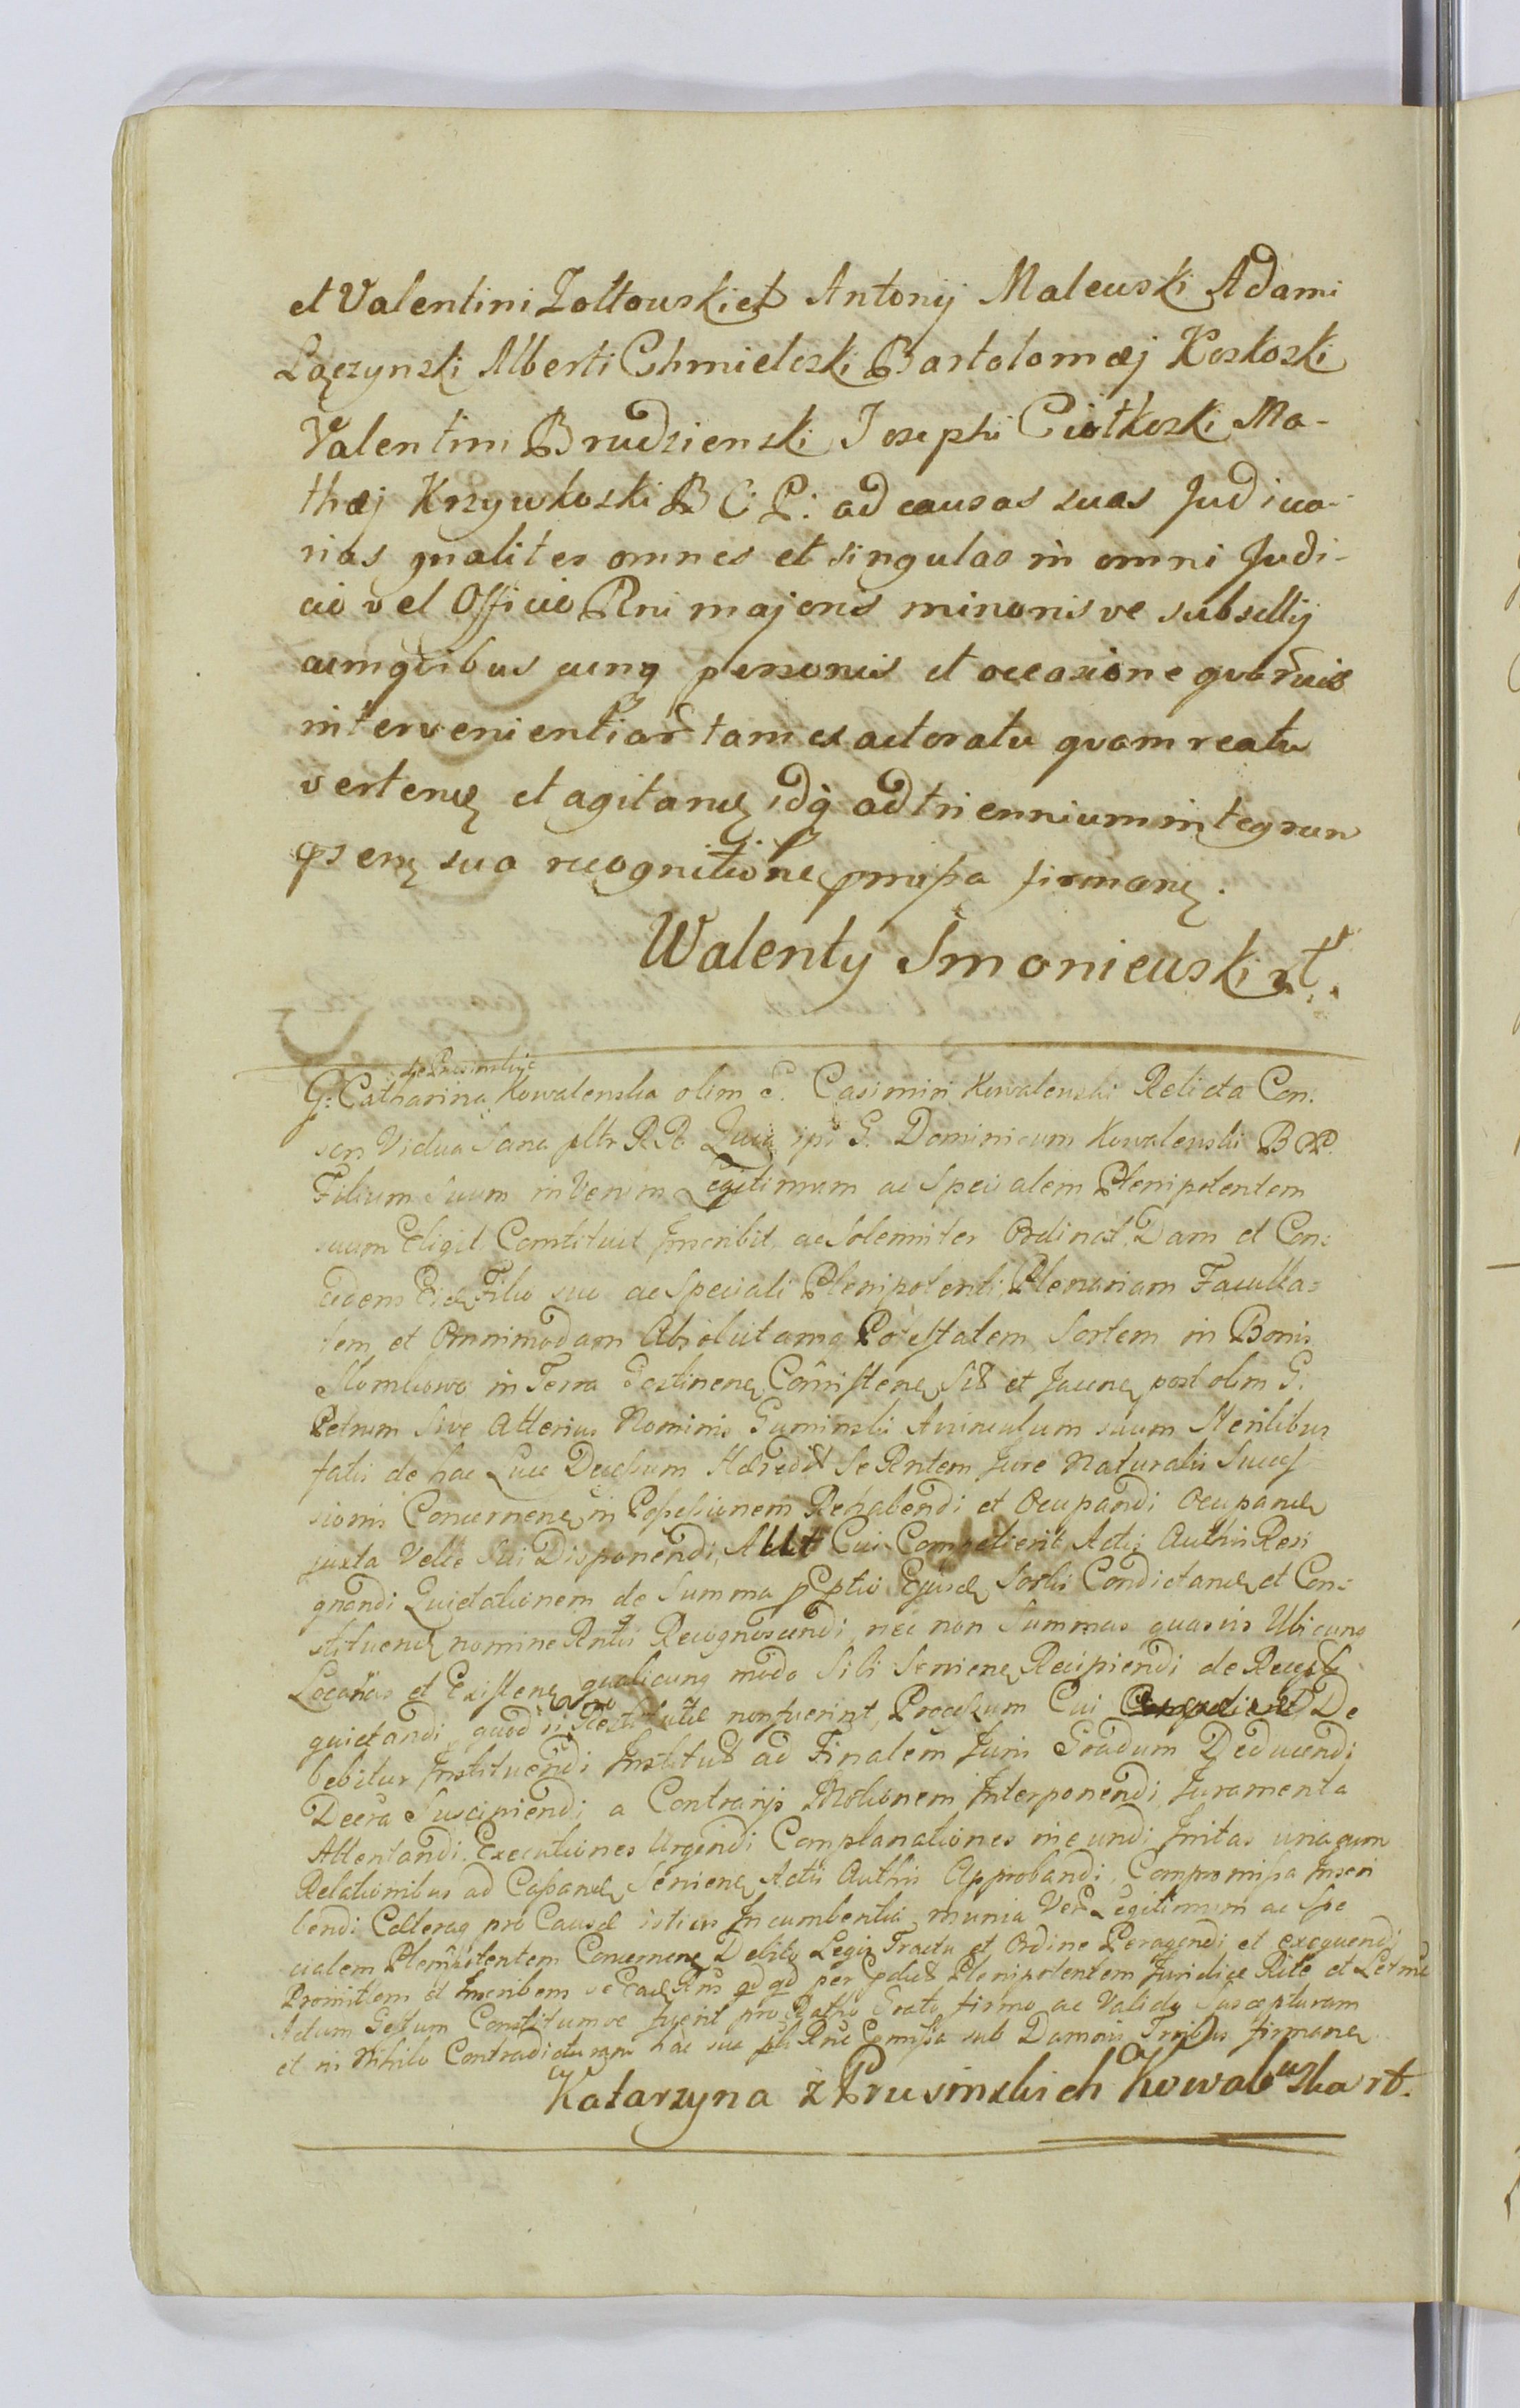 et Valentini Zoltowski et Antonij Malewski Adami
Lączynski Alberti Chmieloski Bartolomæj Koskoski
Valentini Brudzienski Josephi Ciołkoski Ma-
thæj Krzywkoski B C: P: ad causas suas Judicia-
rias gnaliter omnes et singulas in omni Judi-
cio vel Officio Rni majoris minorisve subsellij
cumquibus cunq personis et occasione quarūvis
intervenientiar tam ex actoratu quam reatu
verten et agitan idq ad triennium integrum
psen sua recognitione pmissa firman.
Walenty Smoniewski rt
de Prusinskie
G: Catharina Kowalenska olim G. Casimiri Kowalenski Relicta Con:
sors Vidua Sana pltr R R Quia ips G. Dominicum Kowalenski B P.
Filium Suum in Verum Legitimum ac Specialem Plenipotentem
suum Eligit Constituit Inscribit ac Solenniter Ordinat Dans et Con:
cedens Eid Filio suo ac Speciali Plenipotenti Plenariam Faculta=
tem et Omnimodam Absolutamq Potestatem Sortem in Bonis
Slomkowo in Terra Consisten Sit et Jacen post olim G.
Petrum Sive Alterius Nominis Guminski Avunculum suum Sterilibus
fatis de hac Luce Decessum Se Rntem Jure Naturalis Succes
sionis Concernen in Possessionem Rehabendi et Ocupandi Ocupand
juxta Velle Sui Disponendi, Cui Competierit Actis Authin Resi
gnandi Quietationem de Summa Ejusd Sortis Condictand et Con:
stituend nomine Rntis Recognoscendi, nec non Summas quasvis Ubicunq
Locatas et Existen qualicunq modo Sibi Servien Recipiendi de Recept
quietandi, quod si non fuerint, Processum Cui De
bebitur Instituendi Institut ad Finalem Juris Gradum Deducendi
Decra Suscipiendi a Contrarijs Motionem Interponendi Juramenta
Attentandi Executiones Urgendi Complanationes ineundi Initas unacum
Relationibus ad Cassand Servien Actis Authin Approbandi, Compromissa Inscri
bendi Cetteraq pro Causæ istius Incumbentia munia Ver Legitimum ac Spe
cialem Plenipotentem Concernen Debito Legis Tractu et Ordine Peragendi et exequendi
Promittens et Inscribens se Ead Rns qd qd per Plenipotentem Juridice Rite et Letme
Actum Gestum Constitumve fuerit pro Ratho Grato firmo ac Valido Suscepturam
et in Nihilo Contradicturam hac sua Rne pmissa sub Damnis Terrestribus firman
Katarzyna z Prusinskich Kowalewska rt.